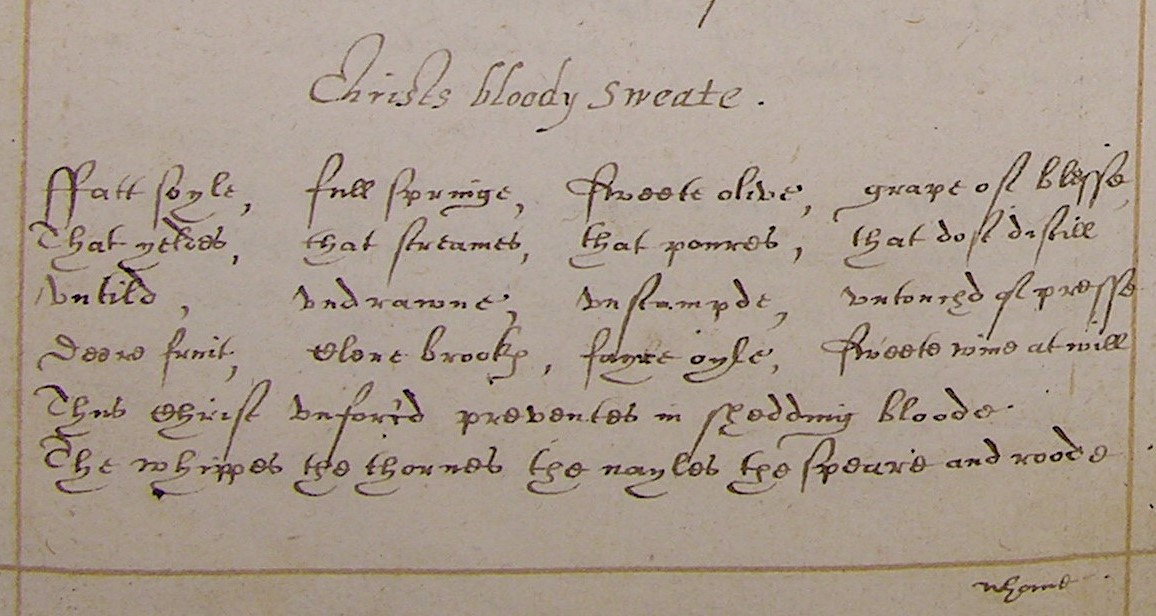 Christs bloody sweate.
ffatt soyle, full springe, sweete olive, grape of blisse,
That yeldes, that streames, that poures, that dost distill
Untild, undrawne, unstampde, untouchd of presse
Deere fruit, clere brookes, fayre oyle, sweete wine at will
Thus Christ unforc'd preventes in shedding bloode
The whippes the thornes the nayles the speare and roode
whome